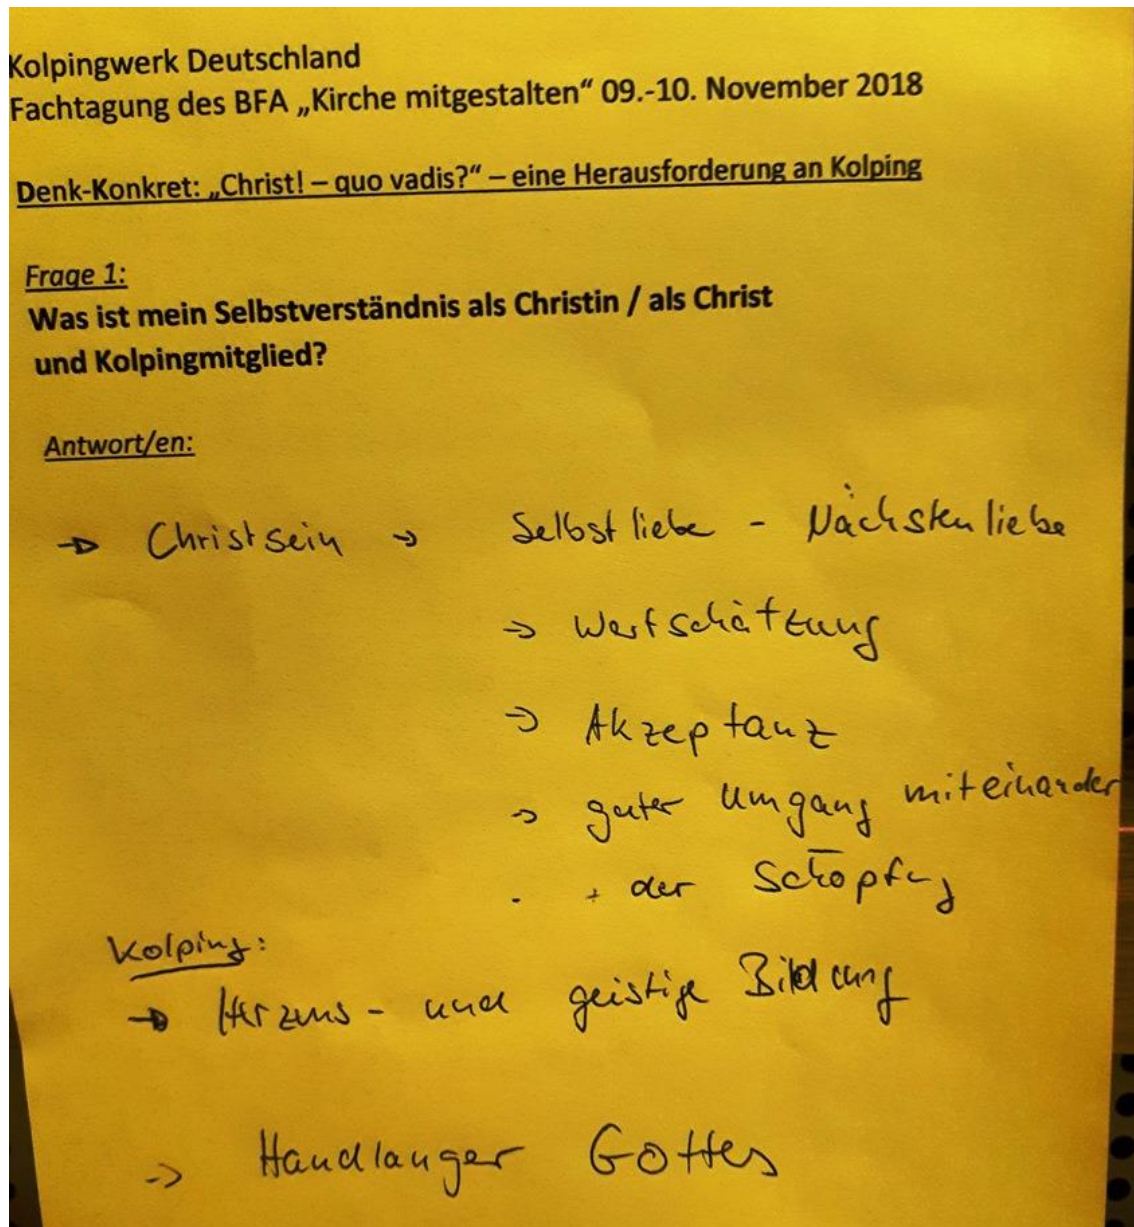 Kolpingwerk Deutschland
Fachtagung des BFA „Kirche mitgestalten“ 09.-10. November 2018
Denk-Konkret: „Christ! – quo vadis?“ – eine Herausforderung an Kolping
Frage 1:
Was ist mein Selbstverständnis als Christin / als Christ
und Kolpingmitglied?
Antwort/en:
→ Christsein → Selbstliebe - Nächstenliebe
→ Wertschätzung
→ Akzeptanz
→ guter Umgang miteinander
+ der Schöpfung
Kolping:
→ Herzens- und geistige Bildung
→ Handlanger Gottes